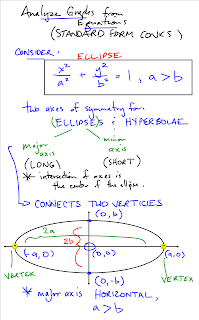 Analyze Graphs from
Equations
(STANDARD FORM CONICS)
CONSIDER:
ELLIPSE
x²/a² + y²/b² = 1, a > b
two axes of symmetry for:
(ELLIPSES & HYPERBOLAE
major axis
minor axis
(LONG)
(SHORT)
* intersection of axes is
the center of the ellipse.
→ CONNECTS TWO VERTICIES
(0, b)
2a
2b
(-a, 0)
(0,0)
(a, 0)
VERTEX
VERTEX
(0, -b)
* major axis HORIZONTAL,
a > b